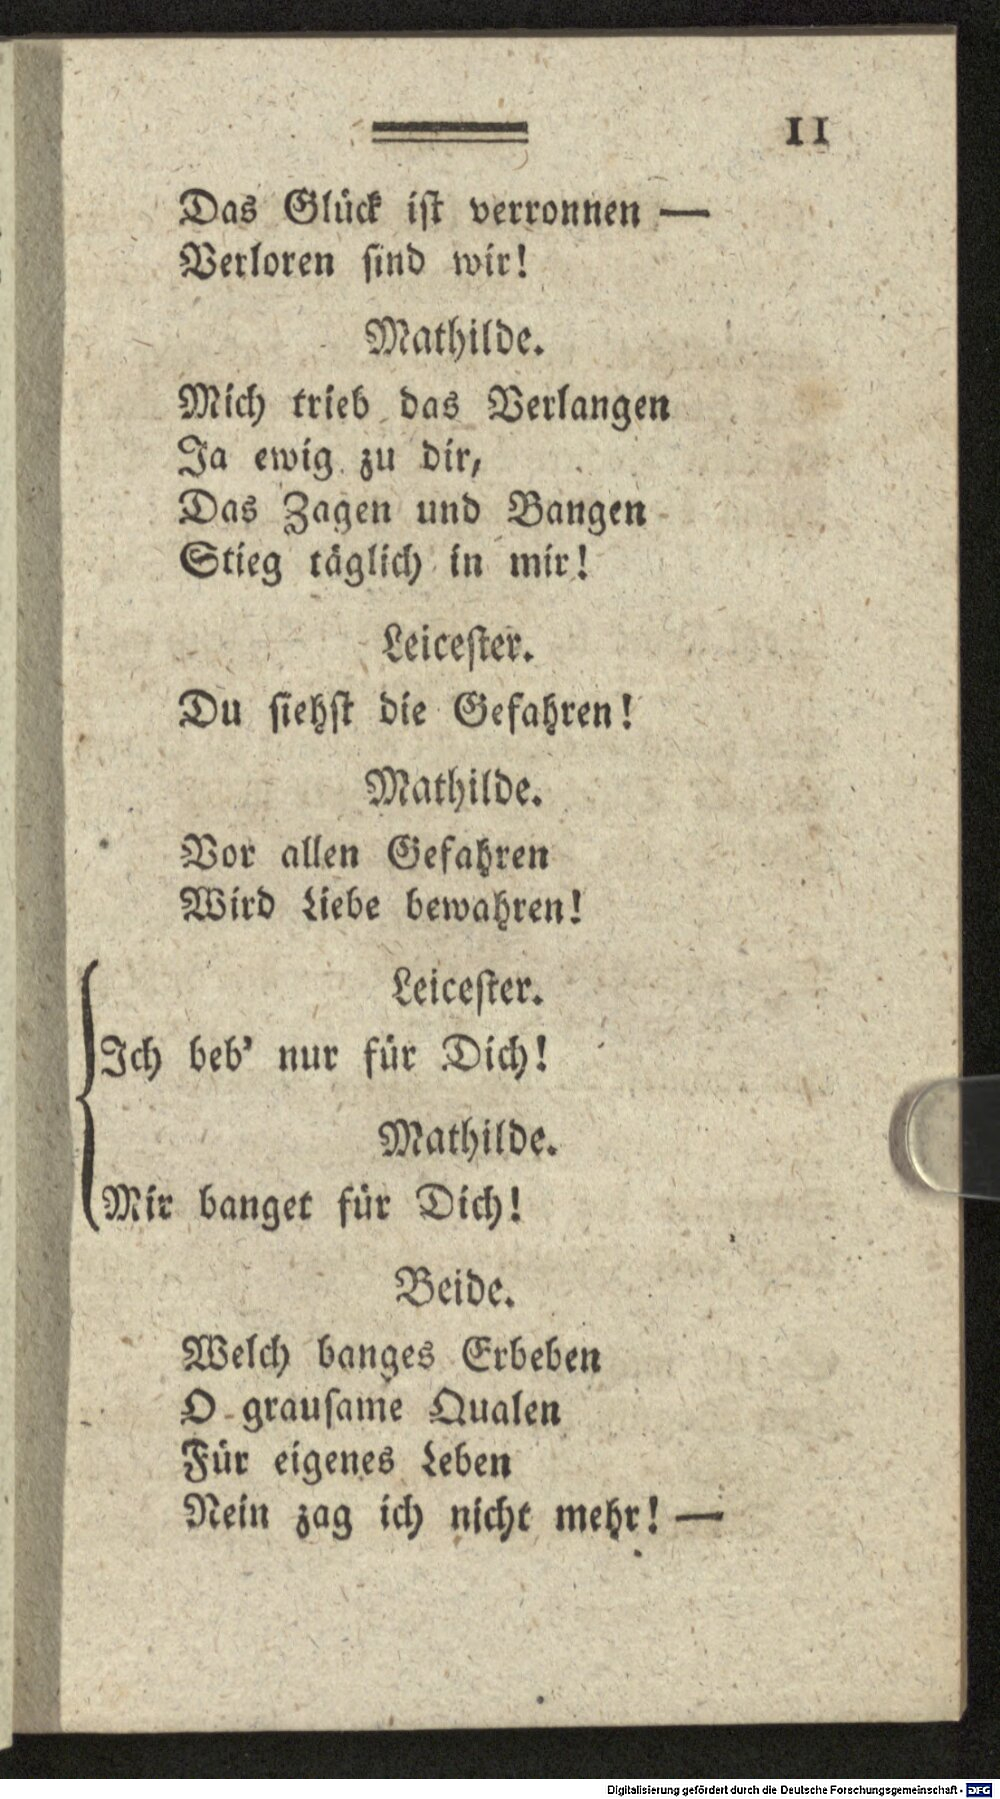 11
Das Glück ist verronnen —
Verloren sind wir!
Mathilde.
Mich trieb das Verlangen
Ja ewig zu dir,
Das Zagen und Bangen
Stieg täglich in mir!
Leicester.
Du siehst die Gefahren!
Mathilde.
Vor allen Gefahren
Wird Liebe bewahren!
Leicester.
Ich beb' nur für Dich!
Mathilde.
Mir banget für Dich!
Beide.
Welch banges Erbeben
O grausame Qualen
Für eigenes Leben
Nein zag ich nicht mehr! —
Digitalisierung gefördert durch die Deutsche Forschungsgemeinschaft - DFG